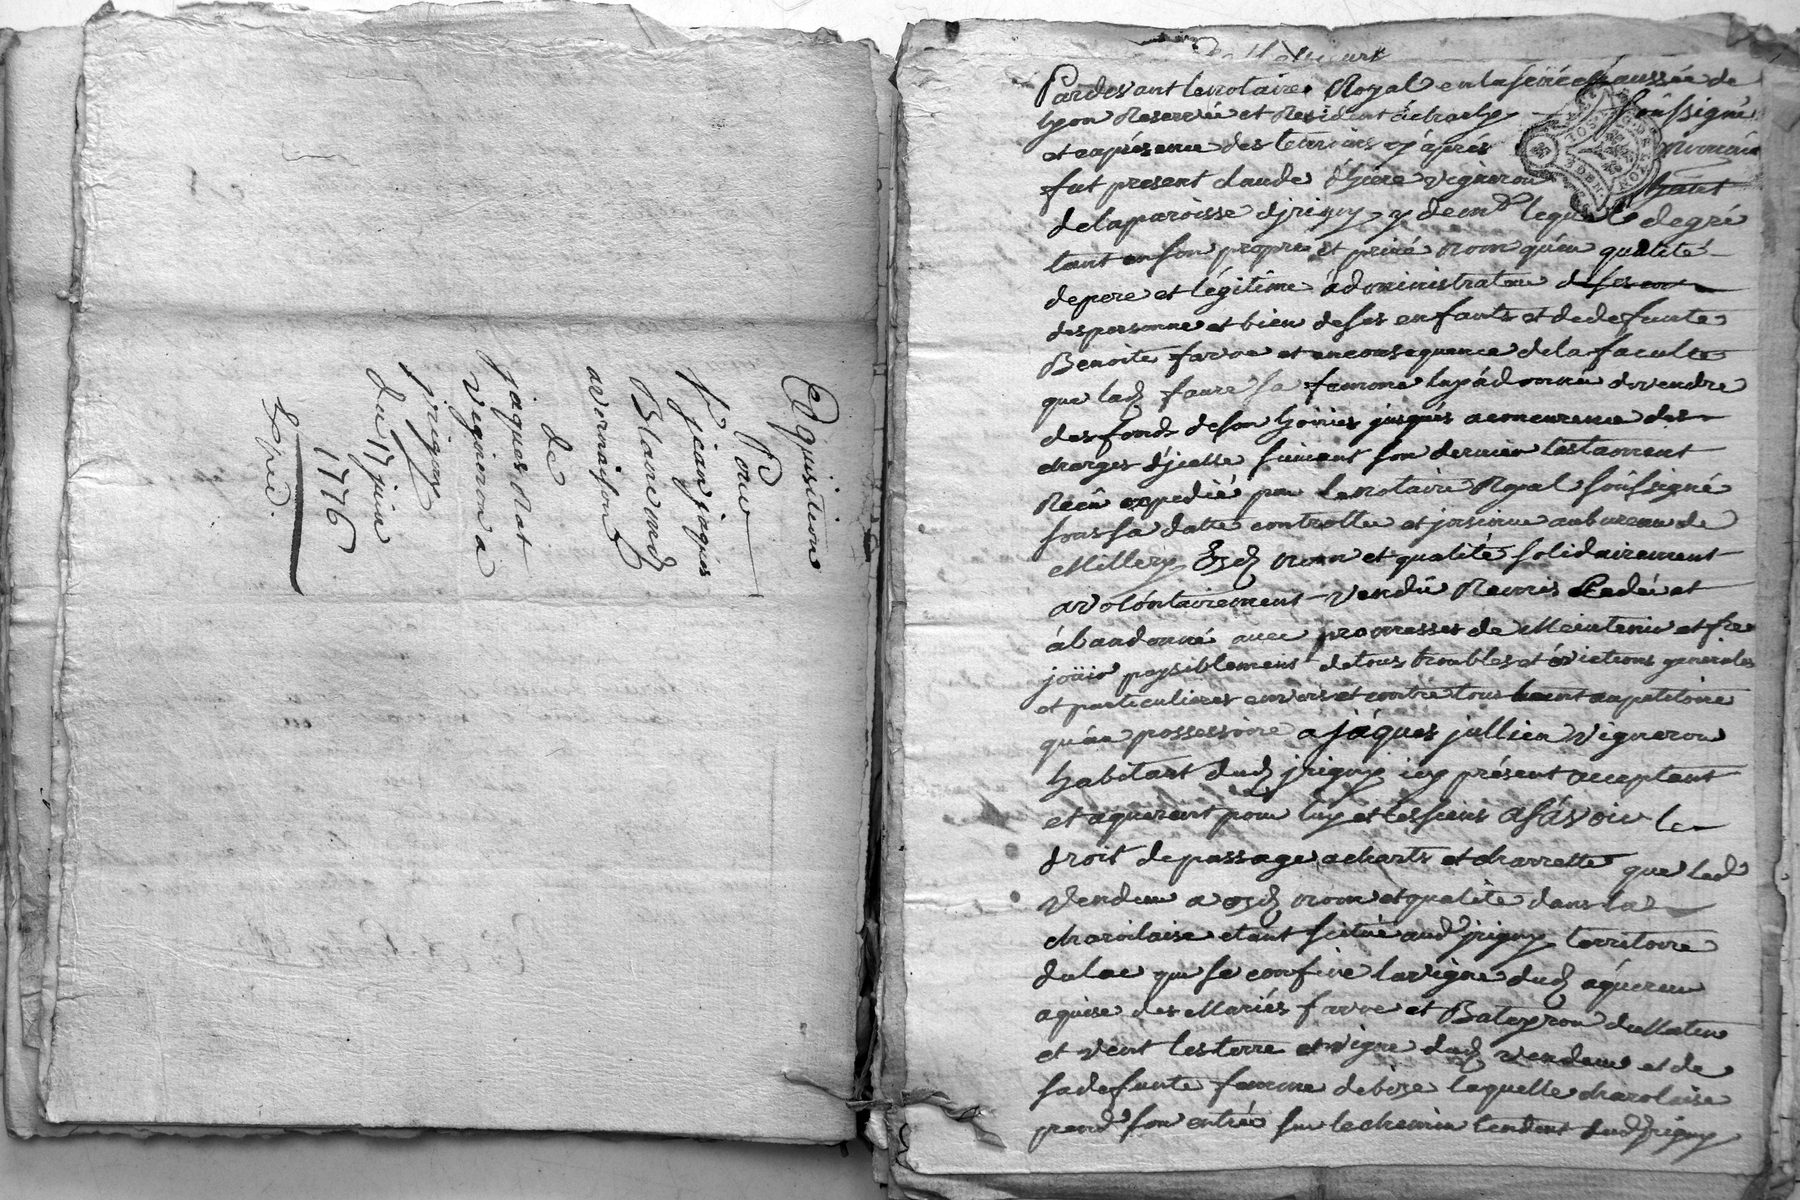 Aquisition
Pour
Sr jean jaques
Blancond
a vernaison
de
jaques Rat
vigneron a
jrigny
du 17 juin
1776
Expié.
Pardevant le notaire Royal en la sénéchaussée de
Lyon Reservé et Resident à charly soussigné
et en présence des temoins cy après nommés
fut present claude vigneron habitant
de la paroisse d'jrigny y demt lequel de gré
tant en son propre et privé nom qu'en qualité
de pere et légitime administrateur de ses
des personne et bien de ses enfants et de defunte
Benoite favre et en consequence de la faculté
que lad favre sa femme luy à donnée de vendre
des fonds de son hoirie jusqués a concurrence des
charges d'jcelle suivant son dernier testament
Reçu expedié par le notaire Royal soussigné
sous sa datte controllée et jnsinué au bureau de
Millery esd nom et qualité solidairement
a volontairement vendû Remis Cedé et
abandonné avec promesses de Maintenir et fre
joüir paysiblement de tous troubles et évictions generales
et particulieres envers et contre tous tant au petitoire
qu'au possessoire a jàques jullien vigneron
habitant dud jrigny icy présent acceptant
et aquerant pour luy et les siens asavoir le
droit de passage a charts et charrette que led
vendeur a esd nom et qualité dans la
charolaise etant scitué aud jrigny territoire
du lac qui se confine la vigne dud aquereur
aquise des Mariés favre et Bateyron du Matin
et vent les terre et vigne dud vendeur et de
sa defunte femme de bize laquelle charolaise
prend son entrée sur le chemin tendant dud jrigny